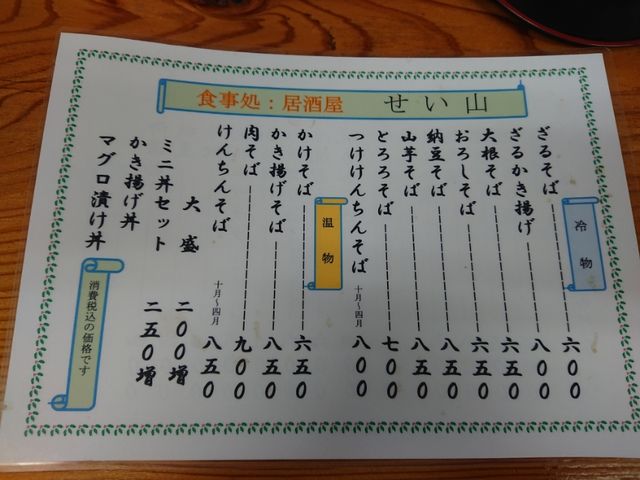 食事処：居酒屋 せい山
冷物
ざるそば 六００
ざるかき揚げ 八００
大根そば 六五０
おろしそば 六五０
納豆そば 八五０
山芋そば 八五０
とろろそば 七００
つけけんちんそば 十月～四月 八００
温物
かけそば 六五０
かき揚げそば 八五０
肉そば 九００
けんちんそば 十月～四月 八五０
大盛 二００増
ミニ丼セット 二五０増
かき揚げ丼
マグロ漬け丼
消費税込の価格です